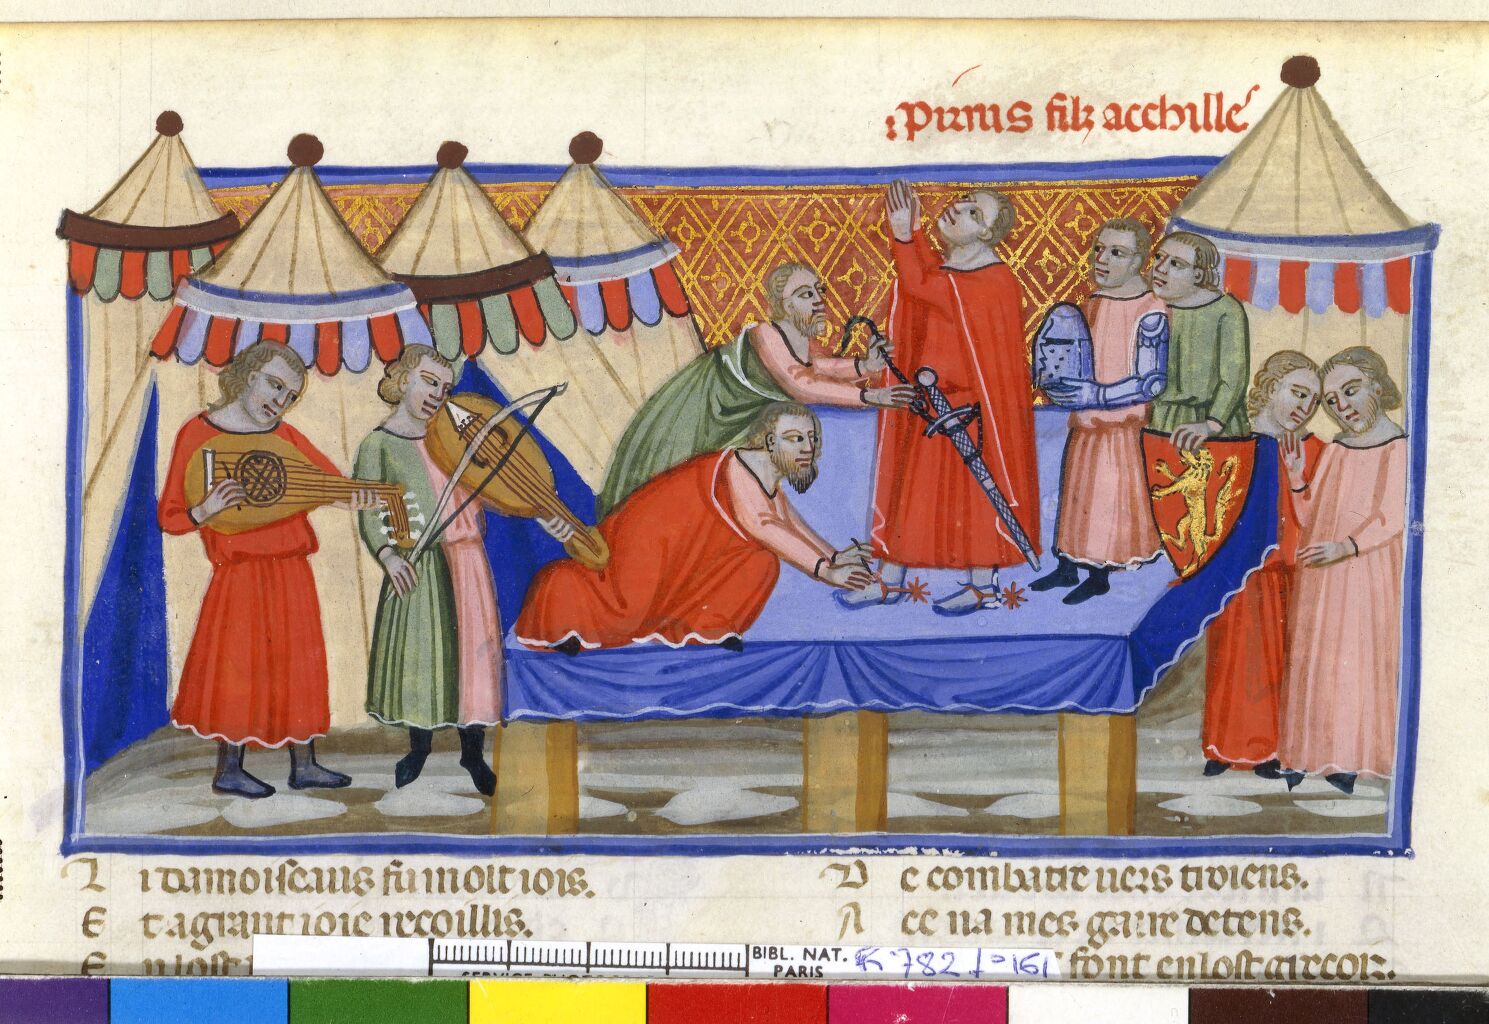 :pirrus filz acchillés
L i damoiseaus fu molt iois.
E t a grant ioie recoillis.
E n lost
D e combatre uers troiens.
A ce na mes gaire de tens.
font en lost grecois.
BIBL. NAT.
PARIS
fr 782 fo 161